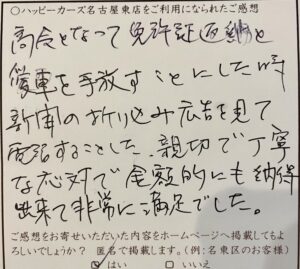 ○ハッピーカーズ名古屋東店をご利用になられたご感想
高令となって免許証返納と
愛車を手放すことにした時
新聞のおりこみ広告を見て
電話することした。親切で丁寧
な応対で金額的にも納得
出来て非常に満足でした。
ご感想をお寄せいただいた内容をホームページへ掲載してもよ
ろしいでしょうか? 匿名で掲載します。(例:名東区のお客様)
はい □いいえ